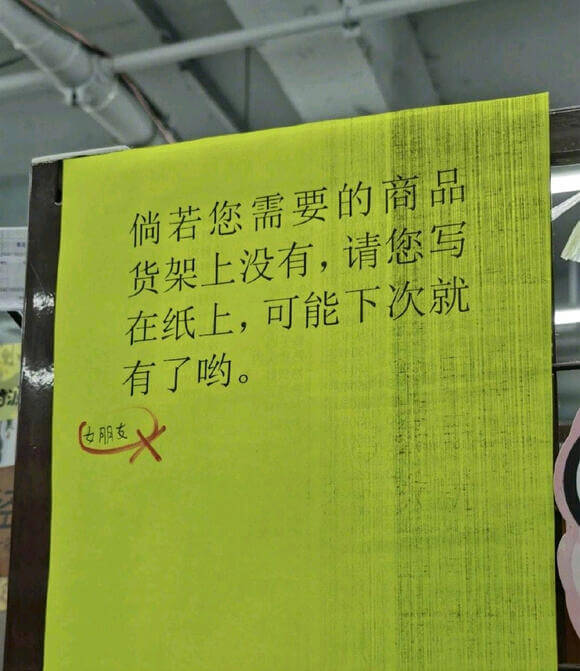 倘若您需要的商品
货架上没有，请您写
在纸上，可能下次就
有了哟。
女朋友